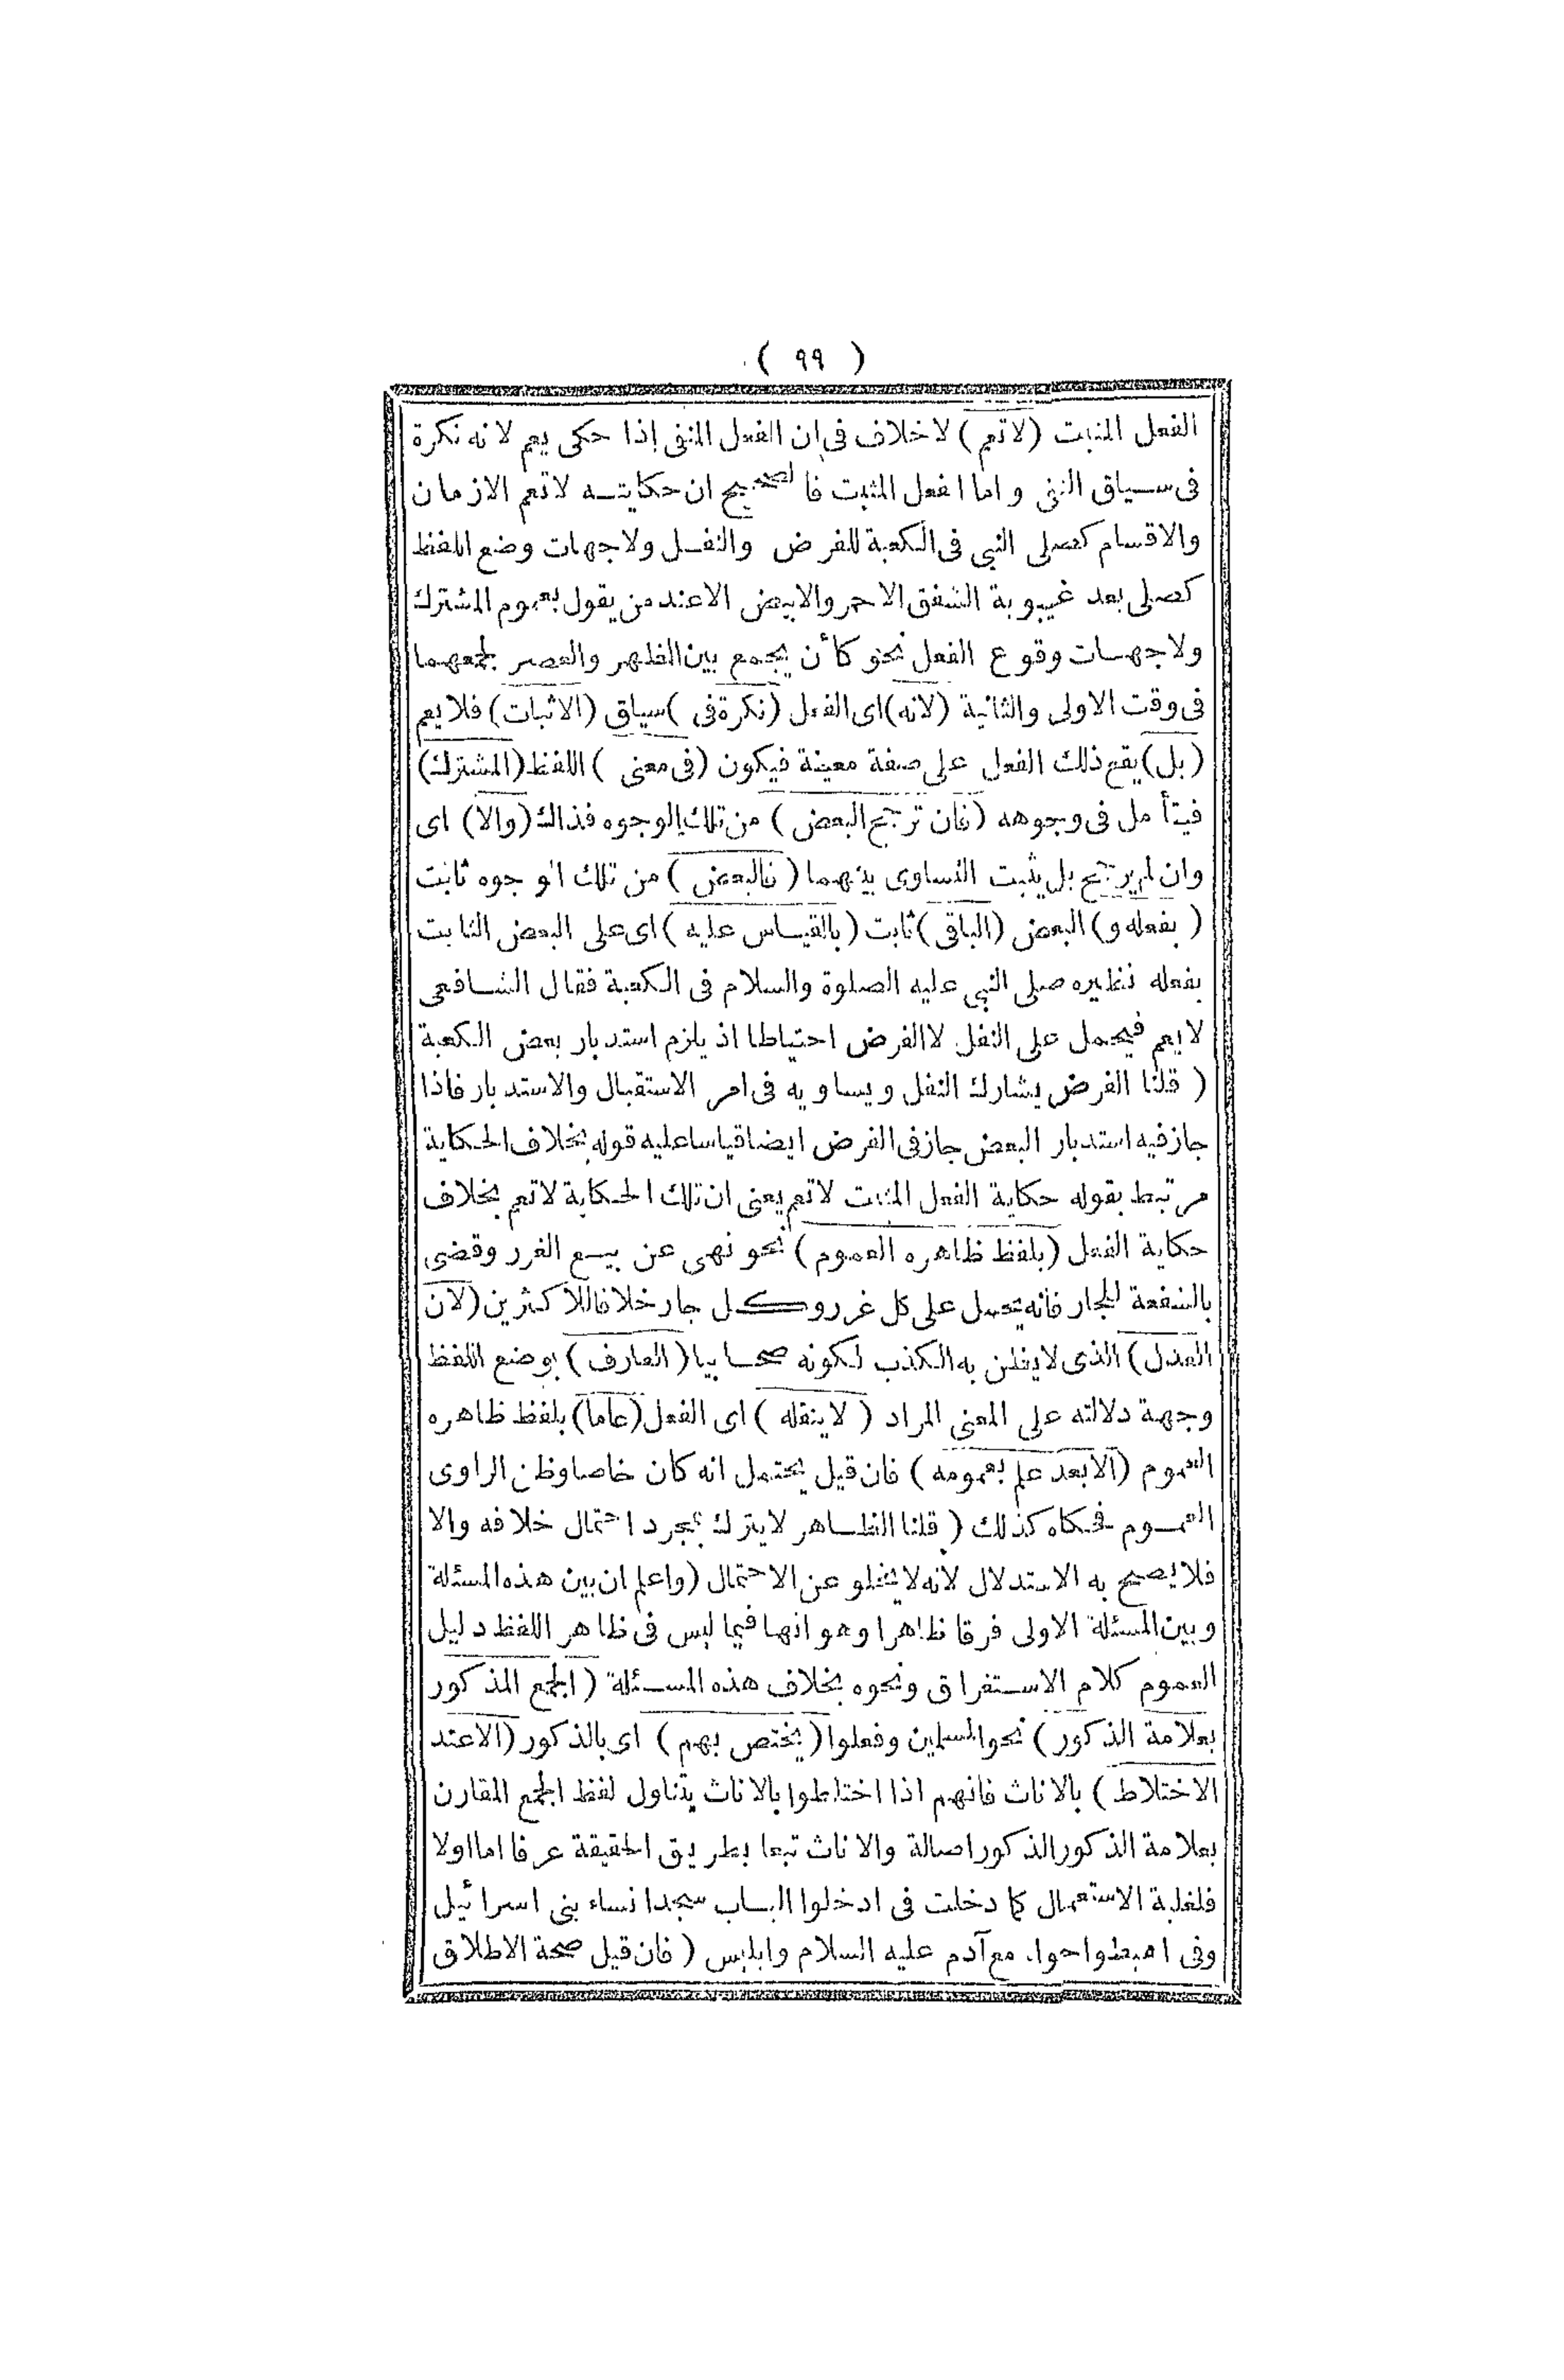 ( ٩٩ )
الفعل المثبت (لا تعم) لا خلاف فى ان الفعل المنفى اذا حكى يعم لانه نكرة
فى سياق النفى واما الفعل المثبت فالصحيح ان حكايته لا تعم الازمان
والاقسام كصلى النبى فى الكعبة للفرض والنفل ولا جهات وضع اللفظ
كصلى بعد غيبوبة الشفق الاحمر والابيض الا عند من يقول بعموم المشترك
ولا جهات وقوع الفعل نحو كأن يجمع بين الظهر والعصر لجمعهما
فى وقت الاولى والثانية (لانه) اى الفعل (نكرة فى) سياق (الاثبات) فلا يعم
(بل) يقع ذلك الفعل على صفة معينة فيكون (فى معنى) اللفظ (المشترك)
فيتأمل فى وجوهه (فان ترجح البعض) من تلك الوجوه فذاك (والا) اى
وان لم يرجح بل يثبت التساوى بينهما (فالبعض) من تلك الوجوه ثابت
(بفعله و) البعض (الباقى) ثابت (بالقياس عليه) اى على البعض الثابت
بفعله نظيره صلى النبى عليه الصلوة والسلام فى الكعبة فقال الشافعى
لا يعم فيحمل على النفل لا الفرض احتياطا اذ يلزم استدبار بعض الكعبة
(قلنا الفرض يشارك النفل ويساويه فى امر الاستقبال والاستدبار فاذا
جاز فيه استدبار البعض جاز فى الفرض ايضا قياسا عليه قوله بخلاف الحكاية
مرتبط بقوله حكاية الفعل المثبت لا تعم يعنى ان تلك الحكاية لا تعم بخلاف
حكاية الفعل (بلفظ ظاهره العموم) نحو نهى عن بيع الغرر وقضى
بالشفعة للجار فانه يحمل على كل غرر وكل جار خلافا للاكثرين (لان
العدل) الذى لا يظن به الكذب لكونه صحابيا (العارف) بوضع اللفظ
وجهة دلالته على المعنى المراد (لا ينقله) اى الفعل (عاما) بلفظ ظاهره
العموم (الا بعد علم بعمومه) فان قيل يحتمل انه كان خاصا وظن الراوى
العموم فحكاه كذلك (قلنا الظاهر لا يترك بمجرد احتمال خلافه والا
فلا يصح به الاستدلال لانه لا يخلو عن الاحتمال (واعلم ان بين هذه المسئلة
وبين المسئلة الاولى فرقا ظاهرا وهو انها فيما ليس فى ظاهر اللفظ دليل
العموم كلام الاستغراق ونحوه بخلاف هذه المسئلة (الجمع المذكور
بعلامة الذكور) نحو المسلمين وفعلوا (يختص بهم) اى بالذكور (الا عند
الاختلاط) بالاناث فانهم اذا اختلطوا بالاناث يتناول لفظ الجمع المقارن
بعلامة الذكور الذكور اصالة والاناث تبعا بطريق الحقيقة عرفا اما اولا
فلغلبة الاستعمال كما دخلت فى ادخلوا الباب سجدا نساء بنى اسرائيل
وفى اهبطوا حوا. مع آدم عليه السلام وابليس (فان قيل صحة الاطلاق